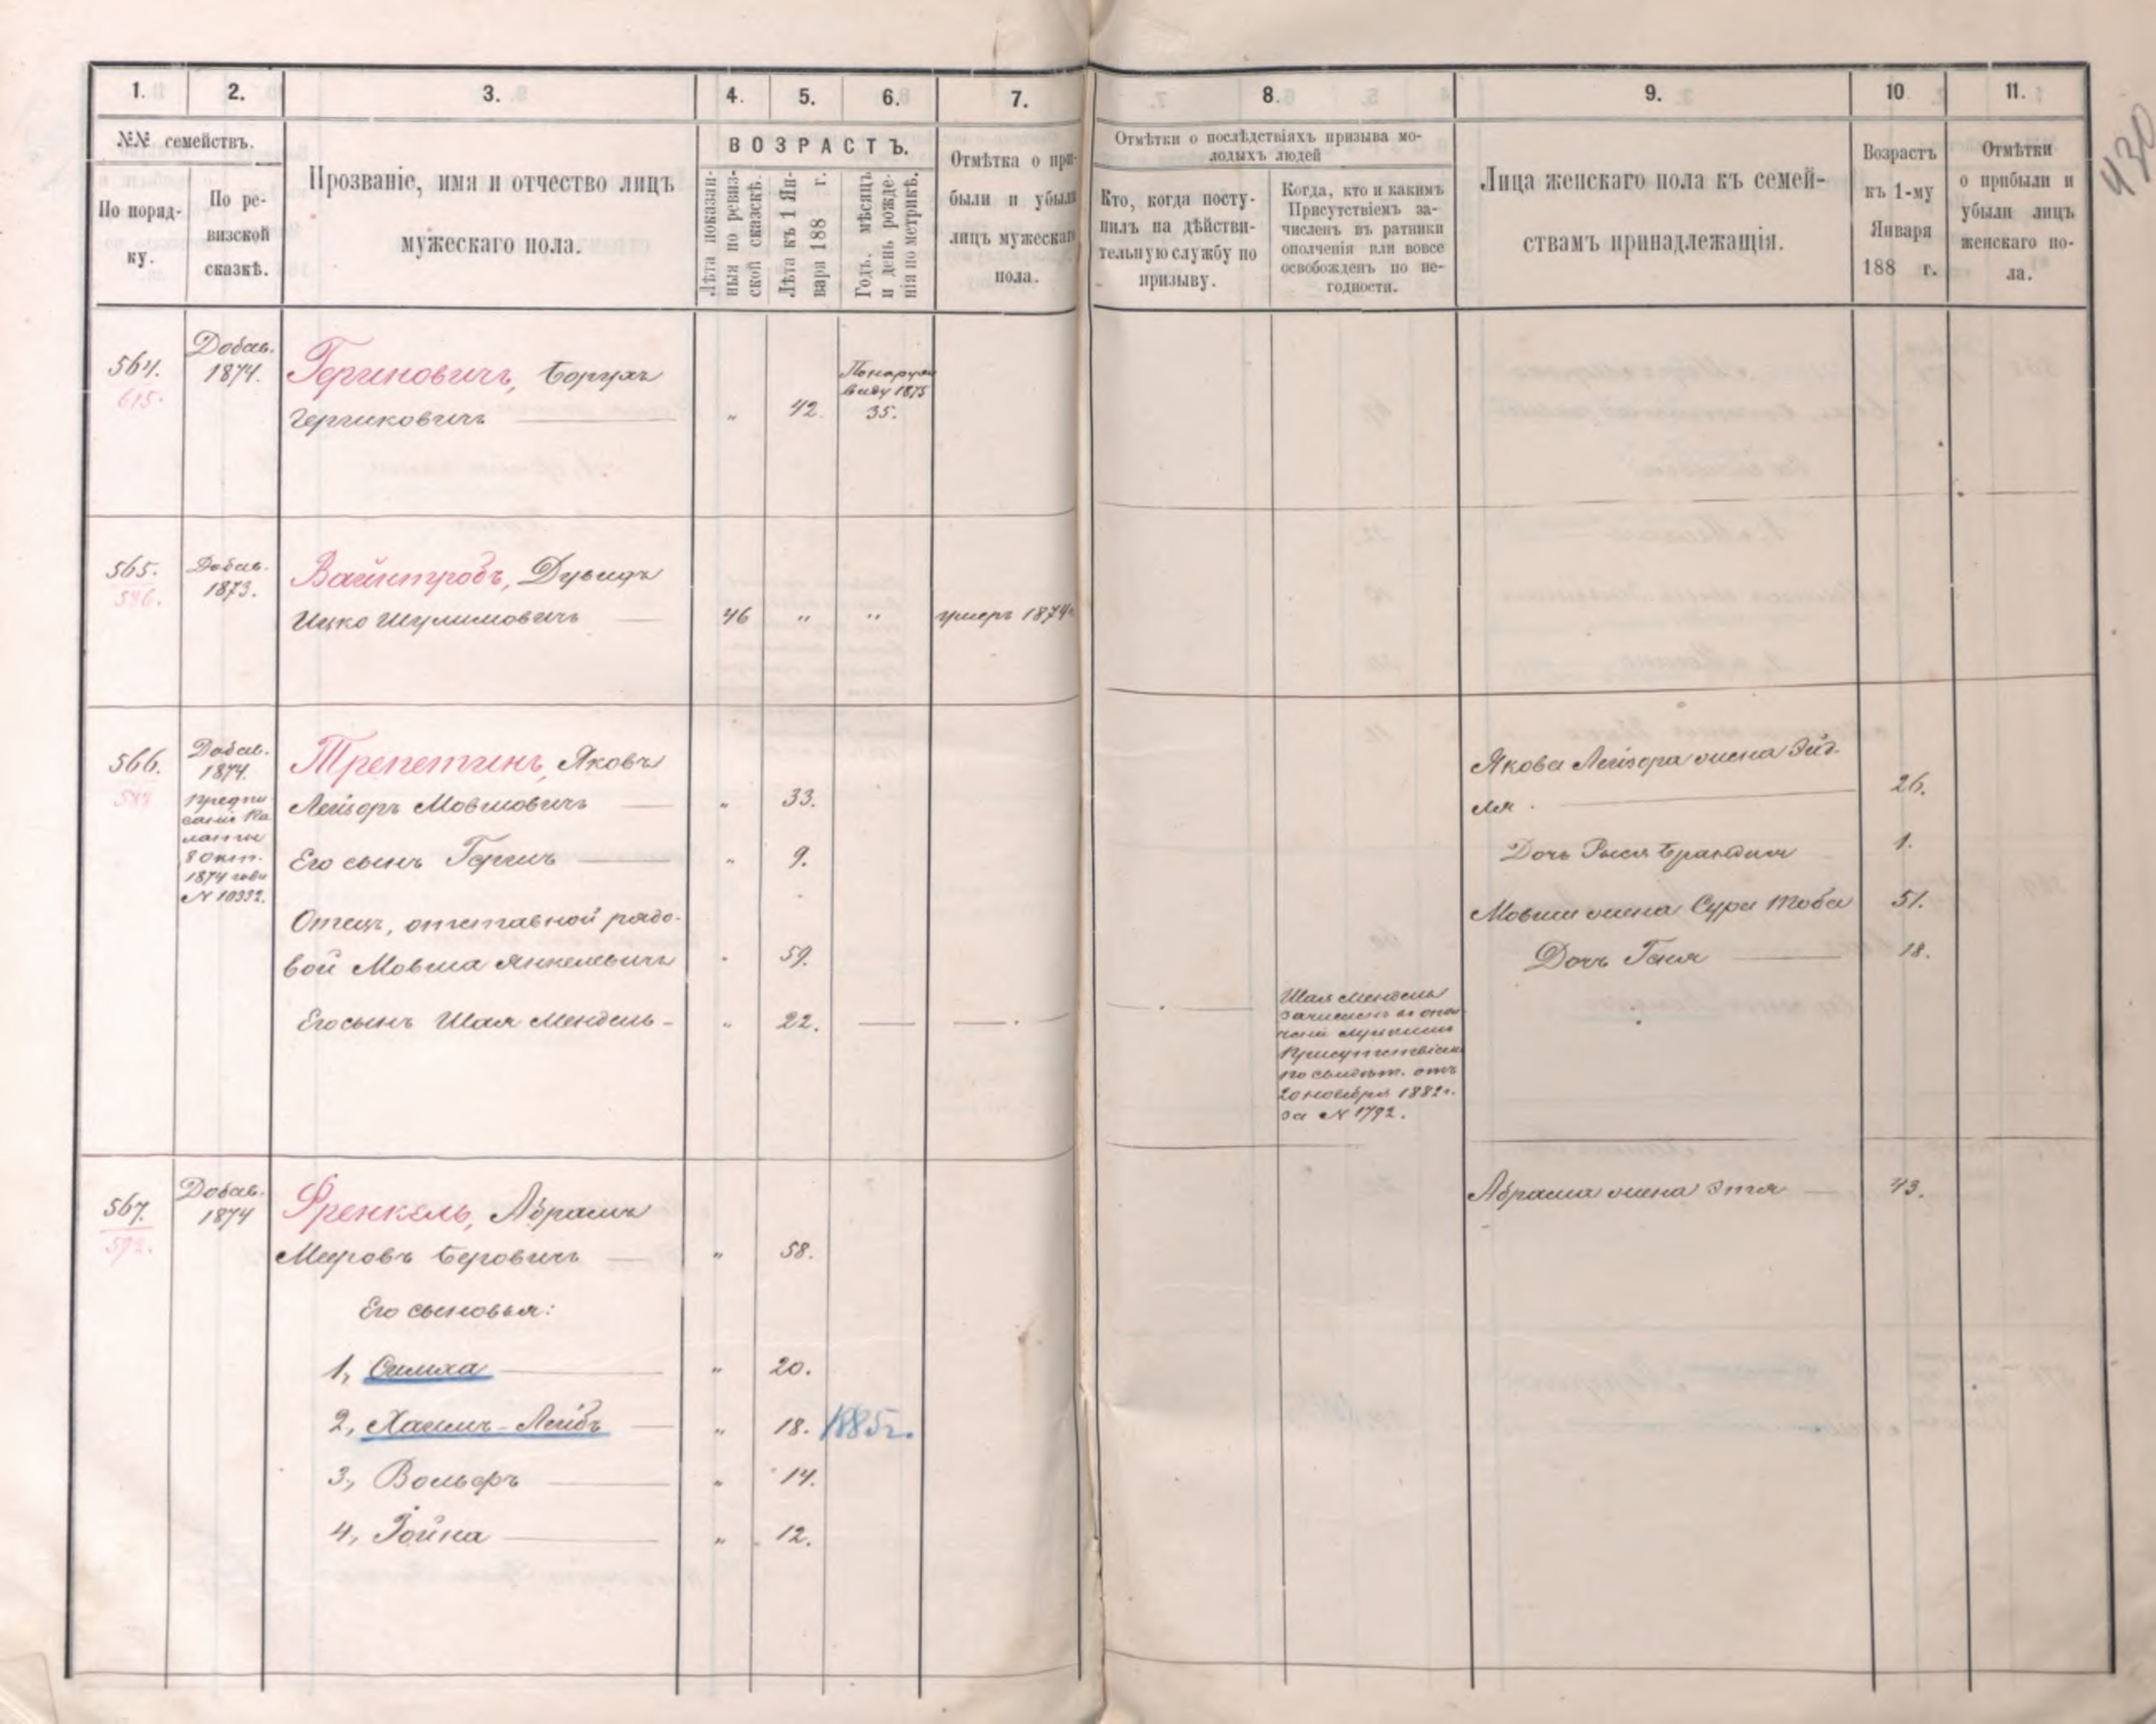 430
1. 2. 3. 4. 5. 6. 7. 8. 9. 10 11.
№№ семействъ.
По поряд-
ку.
По ре-
визской
сказкѣ.
Прозваніе, имя и отчество лицъ
мужескаго пола.
ВОЗРАСТЪ.
Лѣта показан-
ныя по ревиз-
ской сказскѣ.
Лѣта къ 1 Ян-
варя 188 г.
Годъ, мѣсяцъ
и день рожде-
нія по метрикѣ.
Отмѣтка о при-
были и убыли
лицъ мужескаго
пола.
Отмѣтки о послѣдствіяхъ призыва мо-
лодыхъ людей
Кто, когда посту-
пилъ на дѣйстви-
тельную службу по
призыву.
Когда, кто и какимъ
Присутствіемъ за-
численъ въ ратники
ополченія или вовсе
освобожденъ по не-
годности.
Лица женскаго пола къ семей-
ствамъ принадлежащія.
Возрастъ
къ 1-му
Января
188 г.
Отмѣтки
о прибыли и
убыли лицъ
женскаго по-
ла.
564.
615.
Добав.
1874.
Гершновичъ, Борухъ
Гершковичъ
" 42.
виду 1875
35.
565.
586.
Добав.
1873.
Вайнтробъ, Дувидъ
Ицко Шулимовичъ
46 " "
умеръ 1874г
566.
Добав.
1874.
Предпи-
саніе Па
латы
8 Окт.
1874 года
№ 10332.
Трепетинъ, Яковъ
Лейзоръ Мовшовичъ " 33.
Его сынъ Гершъ " 9.
Отецъ, отставной рядо-
вой Мовша Янкелевичъ " 59.
Его сынъ Шая Мендель - " 22.
Шая Мендель
зачисленъ въ опол
ченіе
Присутствіемъ
по свидѣт. отъ
20 ноября 1882г.
за № 1792.
Якова Лейзора жена Эйд-
ля. 26.
Дочь Рыся Брандля 1.
Мовши жена Сура Тоба 51.
Дочь Геня 18.
567.
592.
Добав.
1874
Френкель, Абрамъ
Мееровъ Беровичъ " 58.
Его сыновья:
1, Симха " 20.
2, Хаимъ-Лейбъ " 18. 1885г.
3, Вольфъ " 14.
4, Іойна " 12.
Абрама жена Этя 43.